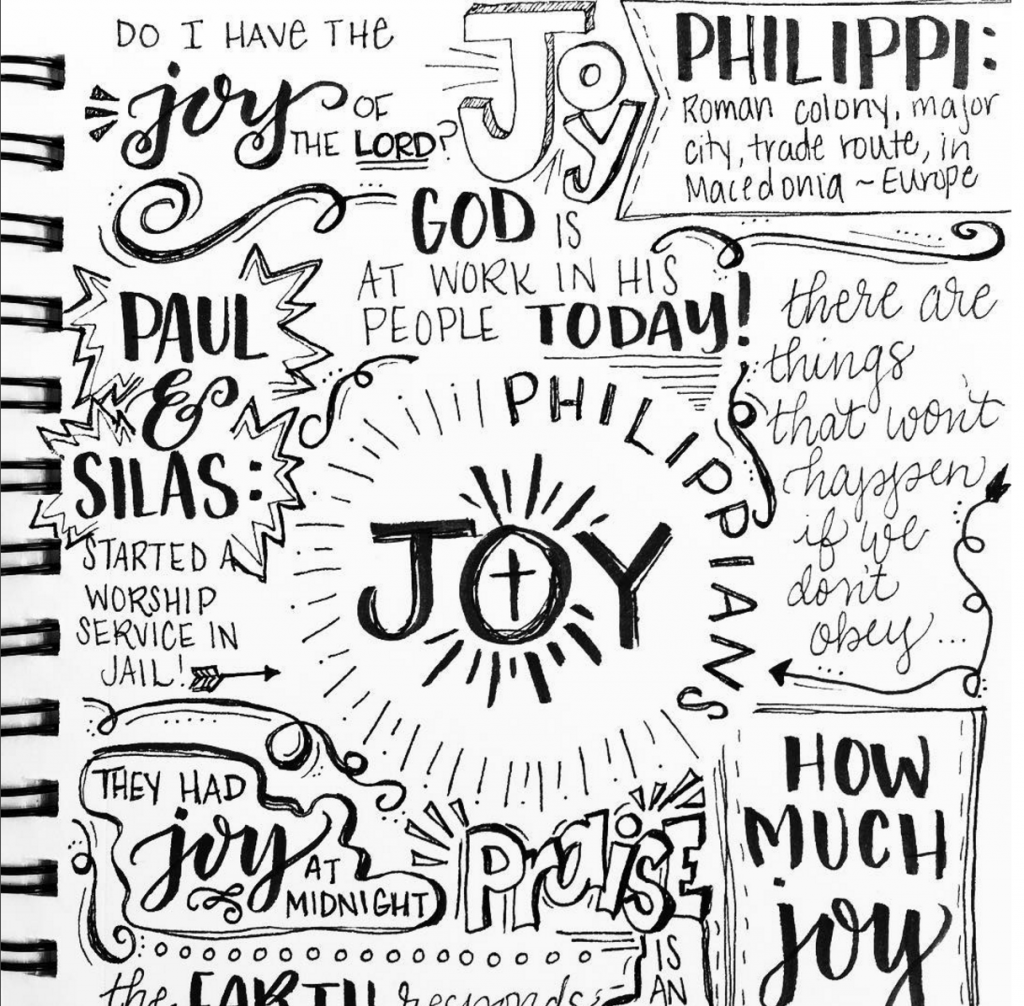 DO I HAVE THE
joy OF
THE LORD?
JOY
PHILIPPI:
Roman colony, major
city, trade route, in
Macedonia ~ Europe
GOD IS
AT WORK IN HIS
PEOPLE TODAY!
PAUL
&
SILAS:
STARTED A
WORSHIP
SERVICE IN
JAIL!
PHILIPPIANS
JOY
there are
things
that won't
happen
if we
don't
obey...
THEY HAD
joy AT
MIDNIGHT
PRAISE
IS
AN
HOW
MUCH
joy
the EARTH responds